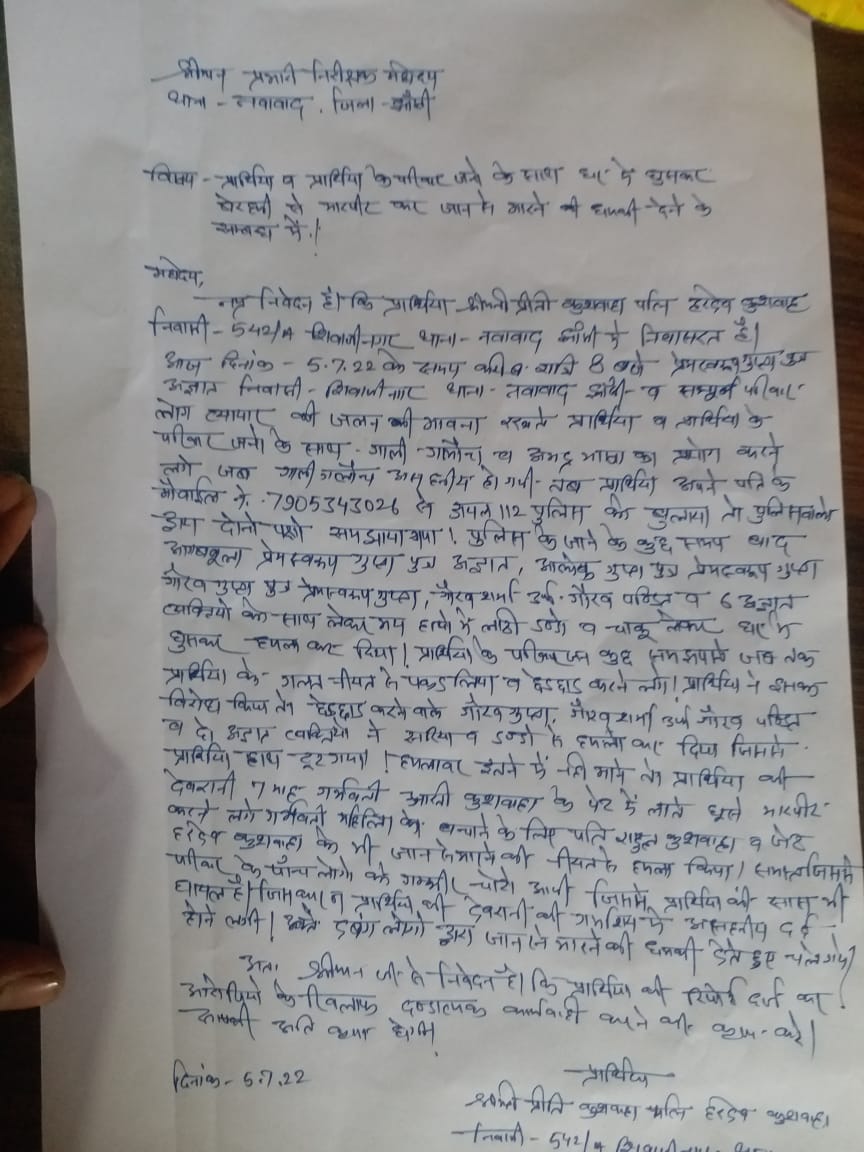 श्रीमान प्रभारी निरीक्षक महोदय
थाना - नवावाद, जिला - झाँसी
विषय - प्रार्थिया व प्रार्थिया के परिवार जनो के साथ घर में घुसकर
बेरहमी से मारपीट कर जान से मारने की धमकी देने के
सम्बन्ध में।
महोदय,
नम्र निवेदन है। कि प्रार्थिया श्रीमती प्रीती कुशवाहा पत्नि हरदेव कुशवाह
निवासी - 542/A शिवाजी नगर थाना - नवावाद झाँसी में निवासरत है।
आज दिनांक - 5.7.22 के समय करीब रात्रि 8 बजे प्रेमस्वरूप गुप्ता पुत्र
अज्ञात निवासी - शिवाजीनगर थाना - नवावाद झाँसी - व सम्पूर्ण परिवार
लोग व्यापार की जलन की भावना रखते प्रार्थिया व प्रार्थिया के
परिवार जनो के साथ - गाली - गलौच व अभद्र भाषा का प्रयोग करने
लगे जब गाली गलौच असहनीय हो गयी - तब प्रार्थिया अपने पति के
मोबाईल नं. - 7905343026 से डायल 112 पुलिस को बुलाया तो पुलिसवालो
द्वारा दोनो पक्षो समझाया गया। पुलिस के जाने के कुछ समय बाद
आगबबूला प्रेमस्वरूप गुप्ता पुत्र अज्ञात, आलोक गुप्ता पुत्र प्रेमस्वरूप गुप्ता
गौरव गुप्ता पुत्र प्रेमस्वरूप गुप्ता, गौरव शर्मा उर्फ गौरव पण्डित व 6 अज्ञात
व्यक्तियो को साथ लेकर मय हाथो में लाठी डण्डो व चाकू लेकर घर में
घुसकर हमला कर दिया। प्रार्थिया के परिवार जन कुछ समझपाते जब तक
प्रार्थिया को गलत नीयत से पकड लिया व छेडछाड करने लगे। प्रार्थिया ने इसका
विरोध किया तो छेडछाड करने वाले गौरव गुप्ता, गौरव शर्मा उर्फ गौरव पण्डित
व दो अज्ञात व्यक्तियो ने सरिया व डण्डो से हमला कर दिया जिससे
प्रार्थिया हाथ टूट गया। हमलावर इतने में नही माने तो प्रार्थिया की
देवरानी 7 माह गर्भवती आरती कुशवाहा के पेट में लाते घूसे मारपीट
करने लगे गर्भवती महिला को बचाने के लिए पति राहुल कुशवाहा व जेठ
हरदेव कुशवाहा के भी जान से मारने की नीयत से हमला किया। जिसमे
परिवार के पाँच लोगो को गम्भीर चोटे आयी जिसमें प्रार्थिया की सास भी
घायल है। प्रार्थिया की देवरानी की गर्भाशय में असहनीय दर्द
होने लगा। दबंग लोगो द्वारा जान से मारने की धमकी देते हुए चले गये।
अतः श्रीमान जी से निवेदन है। कि प्रार्थिया की रिपोर्ट दर्ज कर
आरोपियो के खिलाफ दण्डात्मक कार्यवाही करने की कृपा - करे।
आपकी अति कृपा होगी
दिनांक - 5.7.22
प्रार्थिया
श्रीमती प्रीति कुशवाहा पत्नि हरदेव कुशवाहा
निवासी - 542/A शिवाजीनगर